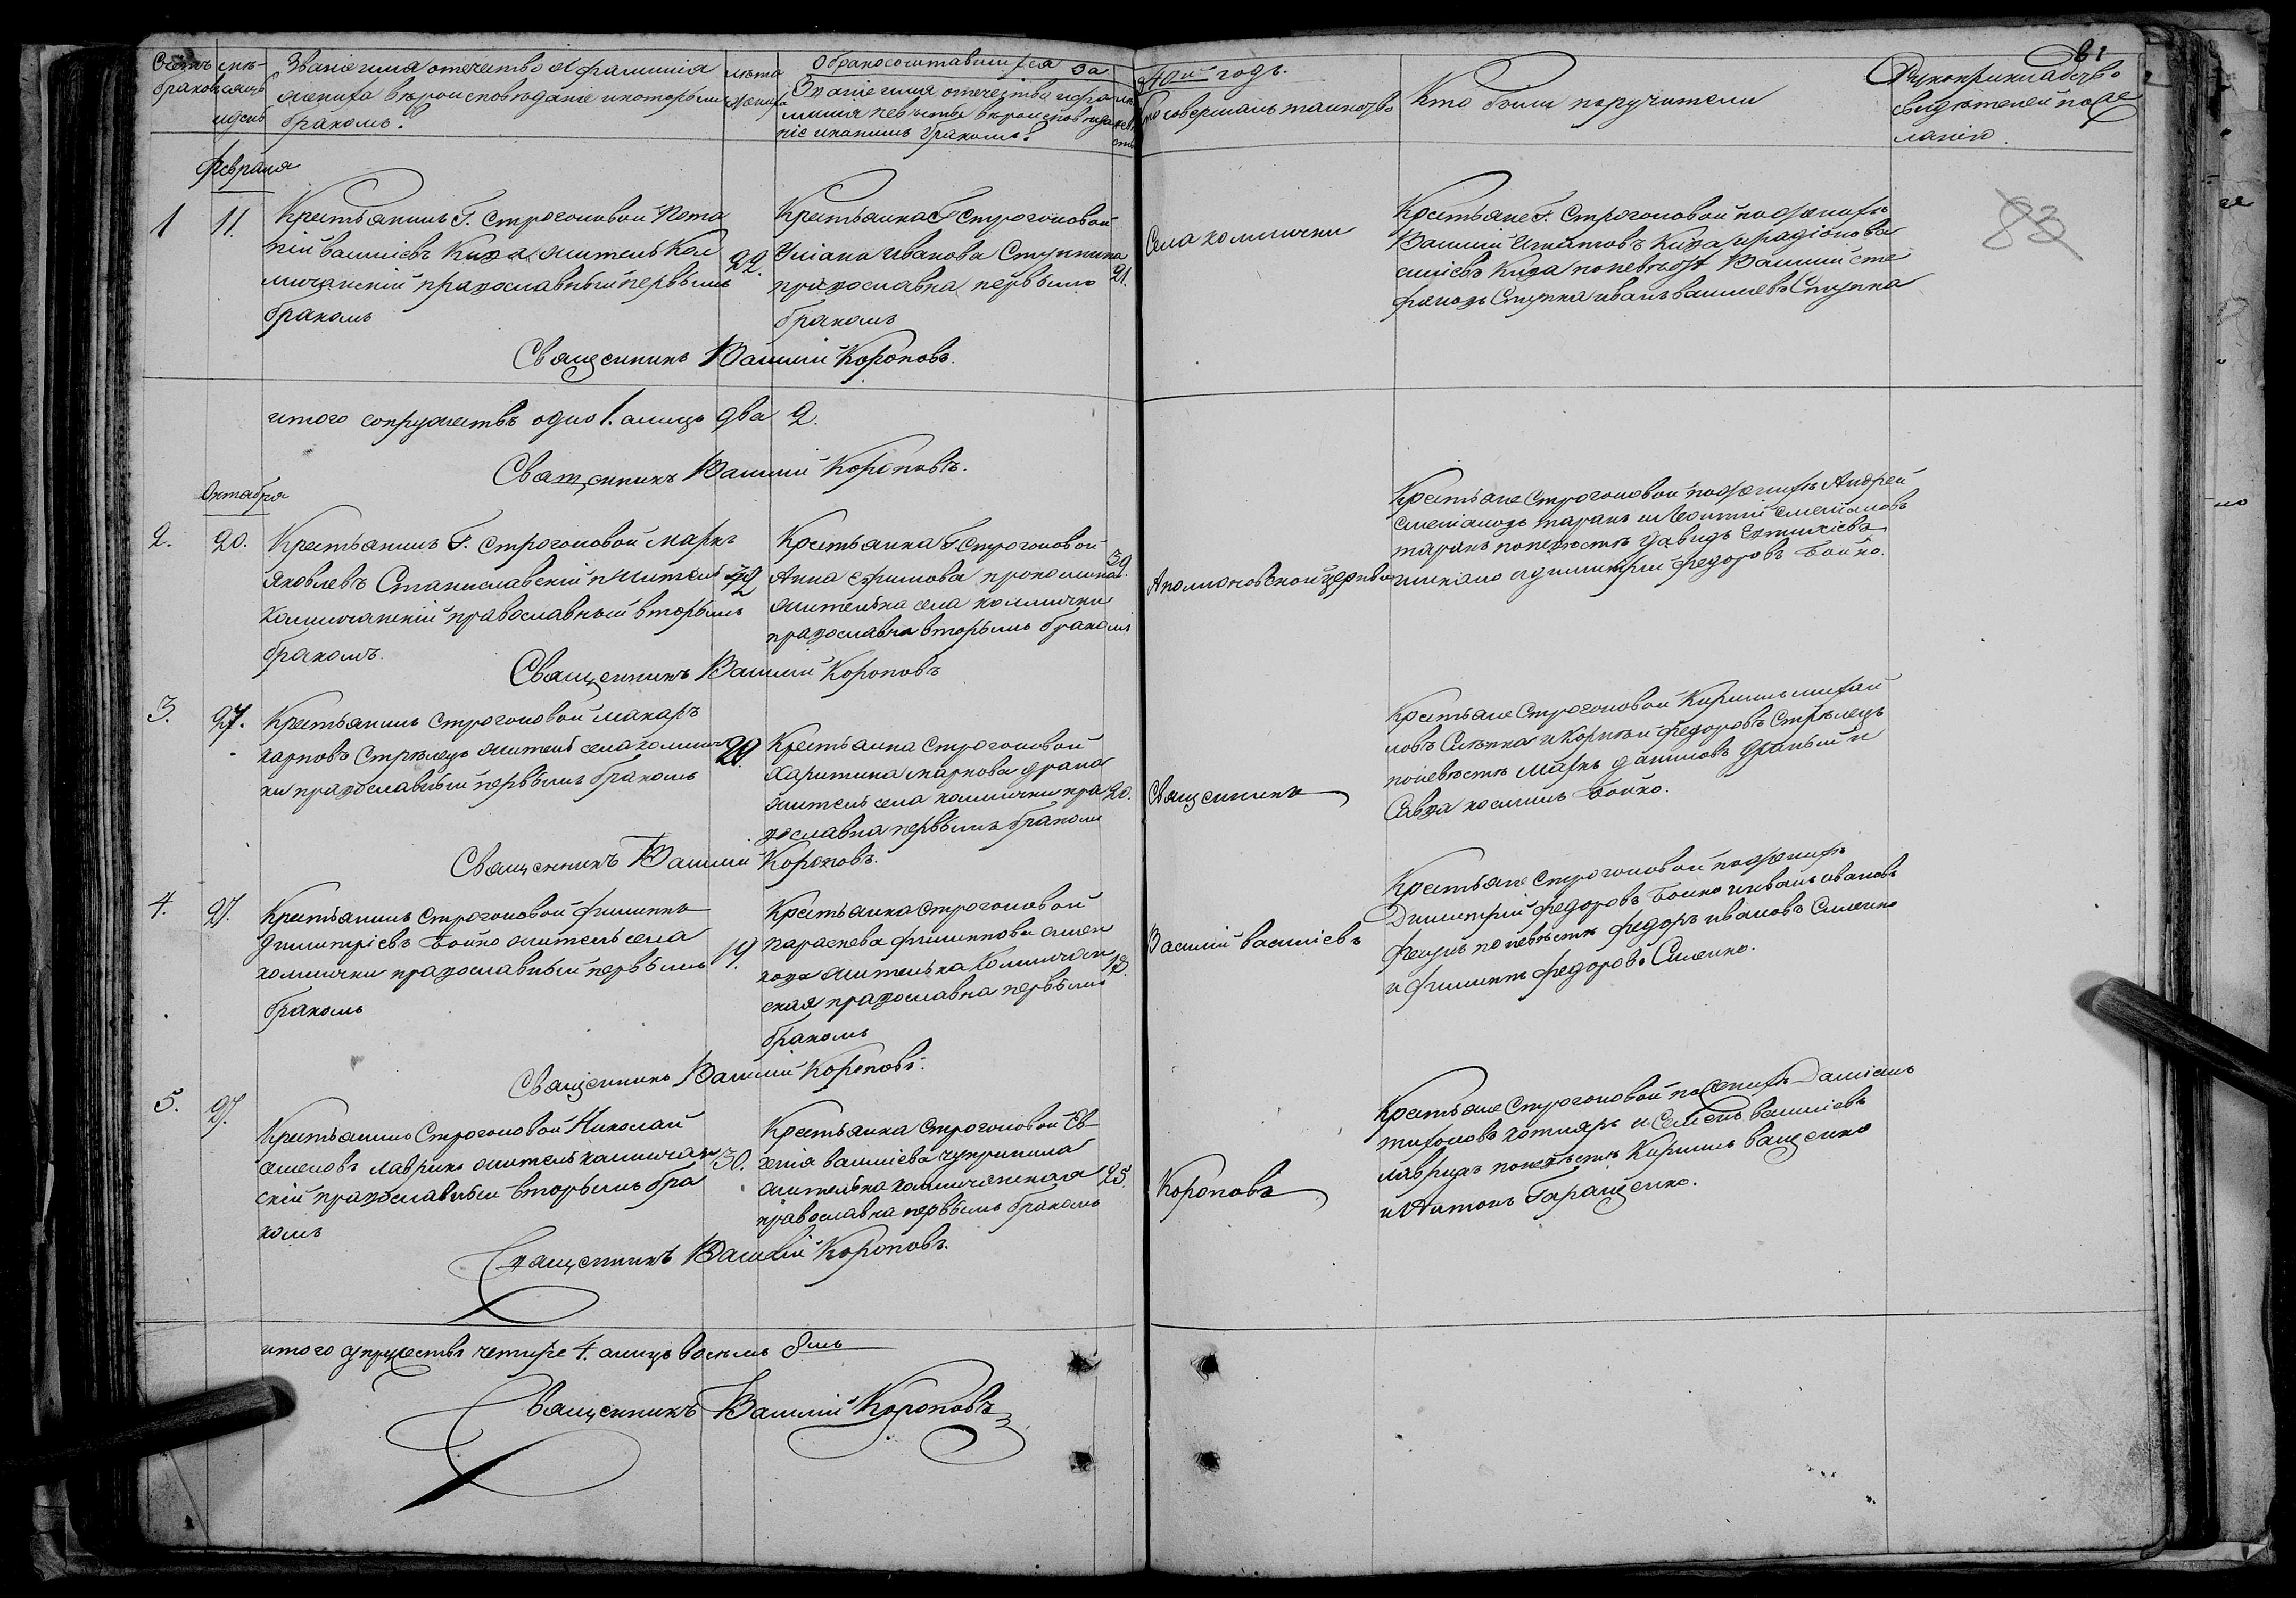 Счетъ
браковъ
мѣ-
сяцъ
и день
Званіе имя отечество и фамилія
жениха вѣроисповѣданіе и которымъ
бракомъ?
лѣта
жениха
О бракосочетавшихся за
Званіе имя отечества и фа
милія невѣсты вѣроисповѣда
ніе и коимъ бракомъ?
40й годъ.
Кто совершалъ таинство
Кто были поручители
Рукоприкладство
свидѣтелей по же
ланію.
81
Февраля
1
11.
Крестьянинъ Г. Строгоновой
пій Василіевъ Кида житель Кал
мичанскій православный первымъ
бракомъ
22.
Крестьянка Г Строгоновой
Уліана Иванова Ступкина
православна первымъ
бракомъ
21.
Села калмички
Крестьяне Г. Строгоновой по женихѣ
Василій Игнатовъ Кида и радіонъ Ва
силіевъ Кида по невѣстѣ Василій Сте
фановъ Ступка иванъ василіевъ Ступка
83
Священникъ Василій Короповъ.
итого супружествъ одно 1. а лицъ два 2.
Священникъ Василій Короповъ.
Октября
2.
20.
Крестьянинъ Г. Строгоновой Маркъ
Яковлевъ Станиславскій житель
Калмичанскій православный вторымъ
бракомъ.
Крестьянка Г Строгоновой
Анна Ефимова
жителька села калмички
православна вторымъ бракомъ
39.
церкви
Крестьяне Строгоновой по женихѣ Андрей
таранъ и Леонтій
таранъ по невѣстѣ Давидъ
и димитрій Федоровъ Бойко.
Священникъ Василій Короповъ
3.
27.
Крестьянинъ Строгоновой макаръ
карповъ Стрѣлецъ житель села калмич
ки православный первымъ бракомъ
20.
Крестьянка Строгоновой
Харитина маркова драна
житель села калмички пра
вославна первымъ бракомъ
20.
Священникъ
Крестьяне Строгоновой Кирилъ михай
ловъ и Корнѣй Федоровъ Стрѣлецъ
по невѣстѣ Маркъ даниловъ драный и
Савва косминъ Бойко.
Священникъ Василій Короповъ.
4.
27.
Крестьянинъ Строгоновой Филиппъ
Димитріевъ Бойко житель села
калмички православный первымъ
бракомъ
19.
Крестьянка Строгоновой
Параскева филиппова
жителька Калмичан
ская православна первымъ
бракомъ
Василій Василіевъ
Крестьяне Строгоновой по женихѣ
Димитрій Федоровъ Бойко и иванъ ивановъ
по невѣстѣ Федоръ ивановъ Силенко
и Филиппъ Федоровъ Силенко.
Священникъ Василій Короповъ.
5.
27.
Крестьянинъ Строгоновой Николай
Семеновъ Лаврикъ житель калмичан
скій православный вторымъ бра
комъ
30.
Крестьянка Строгоновой Ев
генія Василіева Чупринина
жителька калмичанская
православна первымъ бракомъ
25.
Короповъ
Крестьяне Строгоновой по женихѣ Даміанъ
тихоновъ котляръ и Семенъ василіевъ
лаврикъ по невѣстѣ Кирилъ ващенко
и Антонъ Гаращенко.
Священникъ Василій Короповъ.
итого супружествъ четире 4. а лицъ восемь 8мь
Священникъ Василій Короповъ